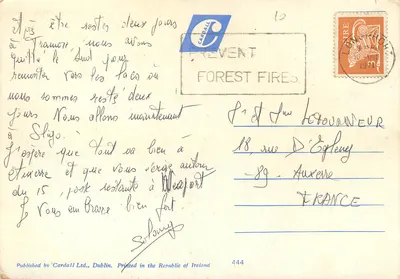 et être restés deux jours
à Tramore nous avons
quitté le Sud pour
remonter vers les lacs où
nous sommes restés deux
jours. Nous allons maintenant
à Sligo.
J'espère que tout va bien à
Auxerre et que vous
du 15, poste restante à Newport
Je vous embrasse bien fort.
Solange
CARDALL
C
PREVENT
FOREST FIRES
EIRE
Mr et Mme LETOURNEUR
18, rue D'Égleny
89 - Auxerre
FRANCE
Published by "Cardall Ltd., Dublin. Printed in the Republic of Ireland.
444